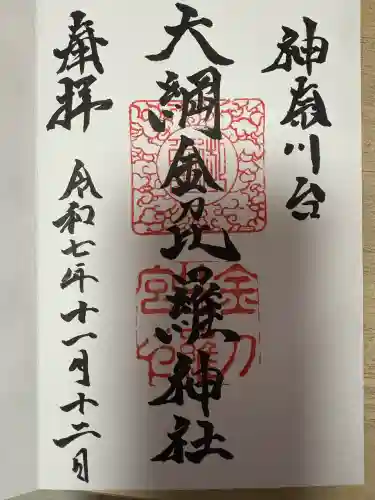 神奈川台
大綱金毘羅神社
奉拝
令和七年十一月十二日